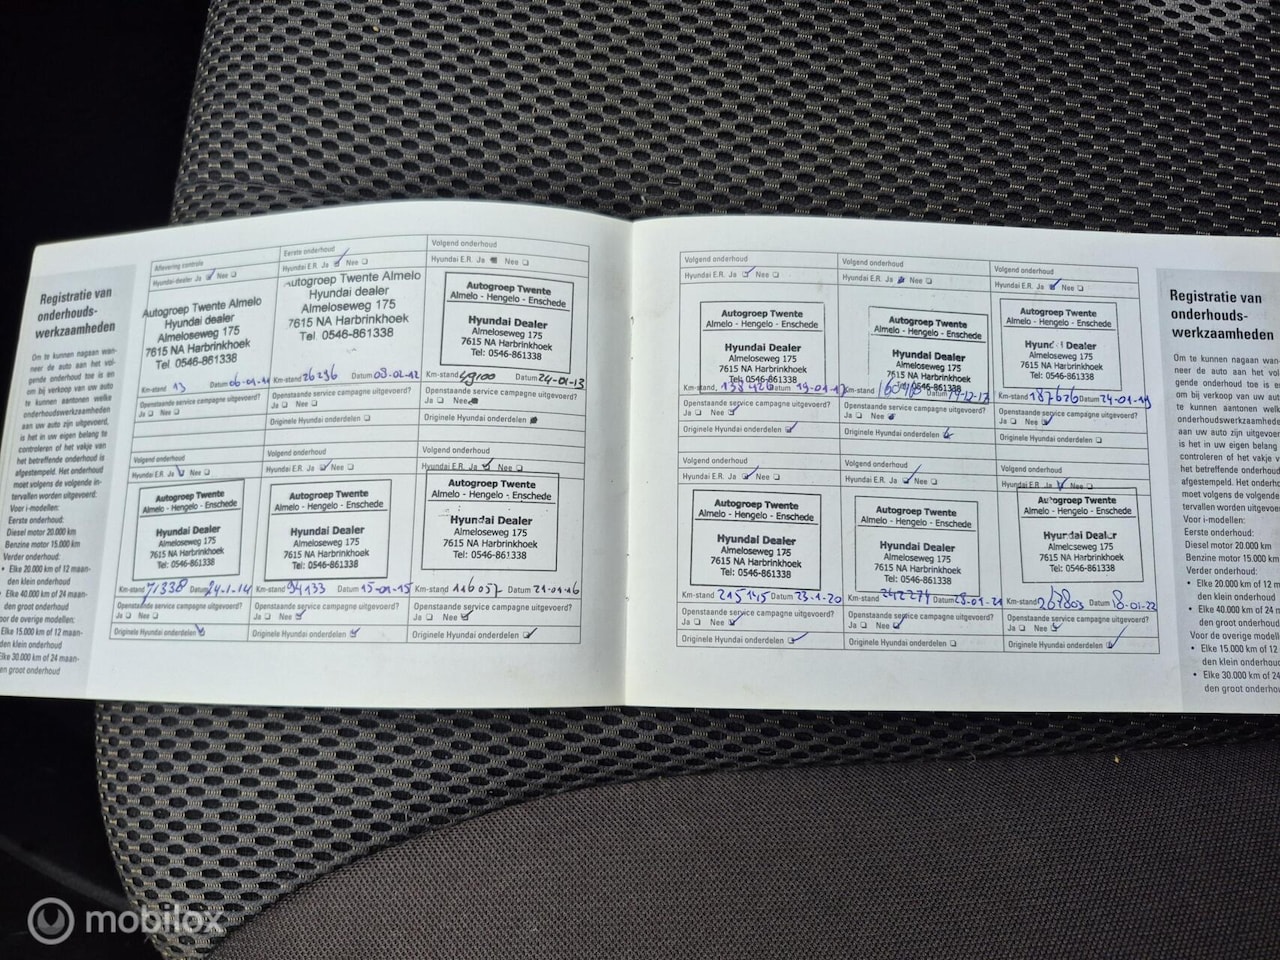 Registratie van
onderhouds-
werkzaamheden
Om te kunnen nagaan wan-
neer de auto aan het vol-
gende onderhoud toe is en
om bij verkoop van uw auto
te kunnen aantonen welke
onderhoudswerkzaamheden
aan uw auto zijn uitgevoerd,
is het in uw eigen belang te
controleren of het vakje van
het betreffende onderhoud is
afgestempeld. Het onderhoud
moet volgens de volgende in-
tervallen worden uitgevoerd:
Voor i-modellen:
Eerste onderhoud:
Diesel motor 20.000 km
Benzine motor 15.000 km
Verder onderhoud:
• Elke 20.000 km of 12 maan-
den klein onderhoud
• Elke 40.000 km of 24 maan-
den groot onderhoud
oor de overige modellen:
Elke 15.000 km of 12 maan-
den klein onderhoud
Elke 30.000 km of 24 maan-
en groot onderhoud
Aflevering controle
Hyundai-dealer Ja Nee
Autogroep Twente Almelo
Hyundai dealer
Almeloseweg 175
7615 NA Harbrinkhoek
Tel. 0546-861338
Km-stand 13 Datum
Openstaande service campagne uitgevoerd?
Ja Nee
Eerste onderhoud
Hyundai E.R. Ja Nee
Autogroep Twente Almelo
Hyundai dealer
Almeloseweg 175
7615 NA Harbrinkhoek
Tel. 0546-861338
Km-stand 26296 Datum 03-02-12
Openstaande service campagne uitgevoerd?
Ja Nee
Originele Hyundai onderdelen
Volgend onderhoud
Hyundai E.R. Ja Nee
Autogroep Twente
Almelo - Hengelo - Enschede
Hyundai Dealer
Almeloseweg 175
7615 NA Harbrinkhoek
Tel: 0546-861338
Km-stand 49100 Datum 24-01-13
Openstaande service campagne uitgevoerd?
Ja Nee
Originele Hyundai onderdelen
Volgend onderhoud
Hyundai E.R. Ja Nee
Autogroep Twente
Almelo - Hengelo - Enschede
Hyundai Dealer
Almeloseweg 175
7615 NA Harbrinkhoek
Tel: 0546-861338
Km-stand 71338 Datum 24-1-14
Openstaande service campagne uitgevoerd?
Ja Nee
Originele Hyundai onderdelen
Volgend onderhoud
Hyundai E.R. Ja Nee
Autogroep Twente
Almelo - Hengelo - Enschede
Hyundai Dealer
Almeloseweg 175
7615 NA Harbrinkhoek
Tel: 0546-861338
Km-stand 94133 Datum 15-01-15
Openstaande service campagne uitgevoerd?
Ja Nee
Originele Hyundai onderdelen
Volgend onderhoud
Hyundai E.R. Ja Nee
Autogroep Twente
Almelo - Hengelo - Enschede
Hyundai Dealer
Almeloseweg 175
7615 NA Harbrinkhoek
Tel: 0546-861338
Km-stand 116057 Datum 21-01-16
Openstaande service campagne uitgevoerd?
Ja Nee
Originele Hyundai onderdelen
Volgend onderhoud
Hyundai E.R. Ja Nee
Autogroep Twente
Almelo - Hengelo - Enschede
Hyundai Dealer
Almeloseweg 175
7615 NA Harbrinkhoek
Tel: 0546-861338
Km-stand 138426 Datum 19-01-17
Openstaande service campagne uitgevoerd?
Ja Nee
Originele Hyundai onderdelen
Volgend onderhoud
Hyundai E.R. Ja Nee
Autogroep Twente
Almelo - Hengelo - Enschede
Hyundai Dealer
Almeloseweg 175
7615 NA Harbrinkhoek
Tel: 0546-861338
Km-stand Datum
Openstaande service campagne uitgevoerd?
Ja Nee
Originele Hyundai onderdelen
Volgend onderhoud
Hyundai E.R. Ja Nee
Autogroep Twente
Almelo - Hengelo - Enschede
Dealer
Almeloseweg 175
7615 NA Harbrinkhoek
Tel: 0546-861338
Km-stand 187626 Datum 24-01-19
Openstaande service campagne uitgevoerd?
Ja Nee
Originele Hyundai onderdelen
Volgend onderhoud
Hyundai E.R. Ja Nee
Autogroep Twente
Almelo - Hengelo - Enschede
Hyundai Dealer
Almeloseweg 175
7615 NA Harbrinkhoek
Tel: 0546-861338
Km-stand 215145 Datum 23-1-20
Openstaande service campagne uitgevoerd?
Ja Nee
Originele Hyundai onderdelen
Volgend onderhoud
Hyundai E.R. Ja Nee
Autogroep Twente
Almelo - Hengelo - Enschede
Hyundai Dealer
Almeloseweg 175
7615 NA Harbrinkhoek
Tel: 0546-861338
Km-stand 242274 Datum 28-01-21
Openstaande service campagne uitgevoerd?
Ja Nee
Originele Hyundai onderdelen
Volgend onderhoud
Hyundai E.R. Ja Nee
Autogroep Twente
Almelo - Hengelo - Enschede
Hyundai Dealer
Almeloseweg 175
7615 NA Harbrinkhoek
Tel: 0546-861338
Km-stand 267803 Datum 18-01-22
Openstaande service campagne uitgevoerd?
Ja Nee
Originele Hyundai onderdelen
Registratie van
onderhouds-
werkzaamheden
Om te kunnen nagaan wan-
neer de auto aan het vol-
gende onderhoud toe is en
om bij verkoop van uw auto
te kunnen aantonen welke
onderhoudswerkzaamheden
aan uw auto zijn uitgevoerd,
is het in uw eigen belang te
controleren of het vakje v
het betreffende onderhoud
afgestempeld. Het onderho
moet volgens de volgende
tervallen worden uitgevoerd
Voor i-modellen:
Eerste onderhoud:
Diesel motor 20.000 km
Benzine motor 15.000 km
Verder onderhoud:
• Elke 20.000 km of 12
den klein onderhoud
• Elke 40.000 km of 24
den groot onderhoud
Voor de overige modellen:
• Elke 15.000 km of 12
den klein onderhoud
• Elke 30.000 km of 24
den groot onderhoud
mobilox